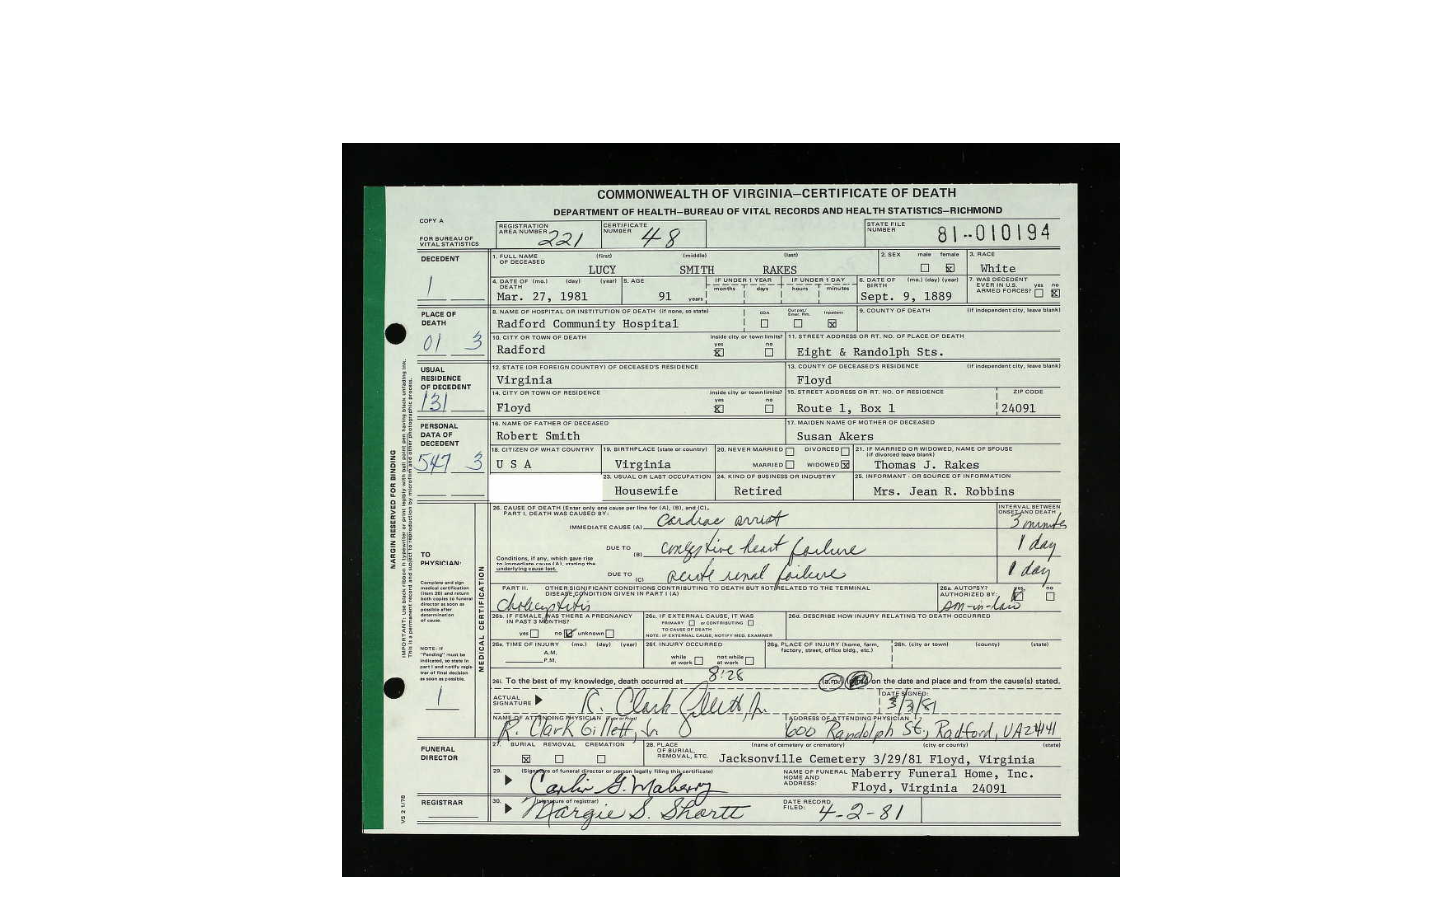 COMMONWEALTH OF VIRGINIA—CERTIFICATE OF DEATH
DEPARTMENT OF HEALTH—BUREAU OF VITAL RECORDS AND HEALTH STATISTICS—RICHMOND
COPY A
FOR BUREAU OF VITAL STATISTICS
REGISTRATION AREA NUMBER 221
CERTIFICATE NUMBER 48
STATE FILE NUMBER 81-010194
DECEDENT
1
1. FULL NAME OF DECEASED (first) (middle) (last)
LUCY SMITH RAKES
2. SEX male female
3. RACE
White
4. DATE OF DEATH (mo.) (day) (year)
Mar. 27, 1981
5. AGE
91 years
IF UNDER 1 YEAR months days
IF UNDER 1 DAY hours minutes
6. DATE OF BIRTH (mo.) (day) (year)
Sept. 9, 1889
7. WAS DECEDENT EVER IN U.S. ARMED FORCES? yes no
PLACE OF DEATH
01 3
8. NAME OF HOSPITAL OR INSTITUTION OF DEATH (if none, so state)
Radford Community Hospital
DOA Out pat/ Emer. Rm. Inpatient
9. COUNTY OF DEATH (if independent city, leave blank)
10. CITY OR TOWN OF DEATH inside city or town limits? yes no
Radford
11. STREET ADDRESS OR RT. NO. OF PLACE OF DEATH
Eight & Randolph Sts.
USUAL RESIDENCE OF DECEDENT
131
12. STATE (OR FOREIGN COUNTRY) OF DECEASED'S RESIDENCE
Virginia
13. COUNTY OF DECEASED'S RESIDENCE (if independent city, leave blank)
Floyd
14. CITY OR TOWN OF RESIDENCE inside city or town limits? yes no
Floyd
15. STREET ADDRESS OR RT. NO. OF RESIDENCE ZIP CODE
Route 1, Box 1 24091
PERSONAL DATA OF DECEDENT
547 3
16. NAME OF FATHER OF DECEASED
Robert Smith
17. MAIDEN NAME OF MOTHER OF DECEASED
Susan Akers
18. CITIZEN OF WHAT COUNTRY
U S A
19. BIRTHPLACE (state or country)
Virginia
20. NEVER MARRIED DIVORCED
MARRIED WIDOWED
21. IF MARRIED OR WIDOWED, NAME OF SPOUSE (if divorced leave blank)
Thomas J. Rakes
23. USUAL OR LAST OCCUPATION
Housewife
24. KIND OF BUSINESS OR INDUSTRY
Retired
25. INFORMANT - OR SOURCE OF INFORMATION
Mrs. Jean R. Robbins
MARGIN RESERVED FOR BINDING
TO PHYSICIAN:
Complete and sign medical certification (item 26) and return both copies to funeral director as soon as possible after determination of cause.
NOTE: If "Pending" must be indicated, so state in part I and notify registrar of final decision as soon as possible.
1
MEDICAL CERTIFICATION
26. CAUSE OF DEATH (Enter only one cause per line for (A), (B), and (C).
PART I. DEATH WAS CAUSED BY:
INTERVAL BETWEEN ONSET AND DEATH
IMMEDIATE CAUSE (A) cardiac arrest 3 minutes
DUE TO (B) congestive heart failure 1 day
Conditions, if any, which gave rise to immediate cause (A), stating the underlying cause last.
DUE TO (C) acute renal failure 1 day
PART II. OTHER SIGNIFICANT CONDITIONS CONTRIBUTING TO DEATH BUT NOT RELATED TO THE TERMINAL DISEASE CONDITION GIVEN IN PART I (A)
Cholecystitis
26a. AUTOPSY? yes no
AUTHORIZED BY:
son-in-law
26b. IF FEMALE, WAS THERE A PREGNANCY IN PAST 3 MONTHS?
yes no unknown
26c. IF EXTERNAL CAUSE, IT WAS
PRIMARY or CONTRIBUTING
TO CAUSE OF DEATH
NOTE: IF EXTERNAL CAUSE, NOTIFY MED. EXAMINER
26d. DESCRIBE HOW INJURY RELATING TO DEATH OCCURRED
26e. TIME OF INJURY (mo.) (day) (year)
A.M.
P.M.
26f. INJURY OCCURRED
while at work not while at work
26g. PLACE OF INJURY (home, farm, factory, street, office bldg., etc.)
26h. (city or town) (county) (state)
26i. To the best of my knowledge, death occurred at 8:28 (a.m.) on the date and place and from the cause(s) stated.
ACTUAL SIGNATURE R. Clark Gillett, Jr.
DATE SIGNED:
3/3/81
NAME OF ATTENDING PHYSICIAN (Type or Print)
R. Clark Gillett, Jr
ADDRESS OF ATTENDING PHYSICIAN
600 Randolph St., Radford, VA 24141
FUNERAL DIRECTOR
27. BURIAL REMOVAL CREMATION
28. PLACE OF BURIAL, REMOVAL, ETC. (name of cemetery or crematory) (city or county) (state)
Jacksonville Cemetery 3/29/81 Floyd, Virginia
29. (Signature of funeral director or person legally filing this certificate)
Carlin G. Maberry
NAME OF FUNERAL HOME AND ADDRESS:
Maberry Funeral Home, Inc.
Floyd, Virginia 24091
REGISTRAR
30. (signature of registrar)
Margie S. Shortt
DATE RECORD FILED: 4-2-81
VS 2 1/78